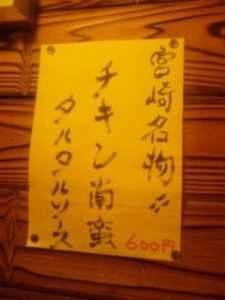 宮崎名物〃
チキン南蛮
タルタルソース
600円